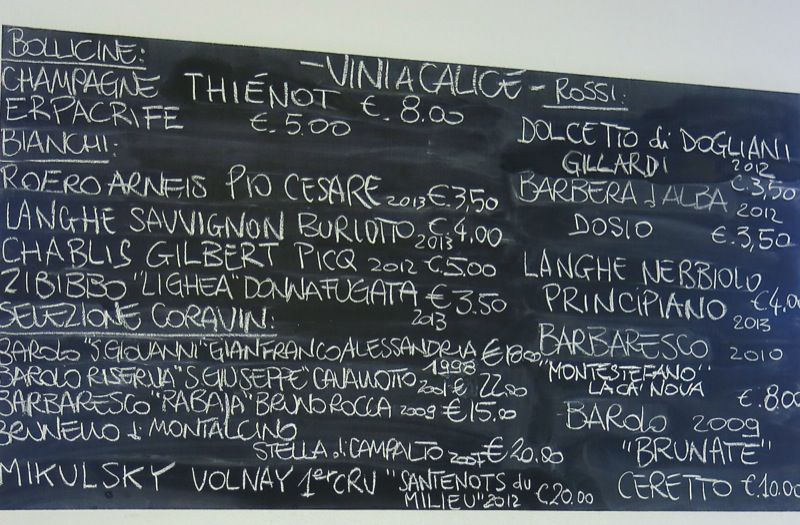 - VINI A CALICE -
BOLLICINE:
CHAMPAGNE THIÉNOT €. 8.00
ERPACRIFE €. 5.00
BIANCHI:
ROERO ARNEIS PIO CESARE 2013 €. 3,50
LANGHE SAUVIGNON BURLOTTO 2013 €. 4.00
CHABLIS GILBERT PICQ 2012 €. 5.00
ZIBIBBO "LIGHEA" DONNAFUGATA 2013 € 3.50
SELEZIONE CORAVIN:
BAROLO "S. GIOVANNI" GIANFRANCO ALESSANDRIA 1998 €
BAROLO RISERVA "S. GIUSEPPE" CAVALLOTTO 2001 €
BARBARESCO "RABAJA" BRUNO ROCCA 2009 € 15.00
BRUNELLO di MONTALCINO
STELLA di CAMPALTO € 20.00
MIKULSKY VOLNAY 1er CRU "SANTENOTS du
MILIEU" 2012 €. 20.00
ROSSI:
DOLCETTO di DOGLIANI
GILLARDI 2012 €. 3,50
BARBERA d'ALBA 2012
DOSIO €. 3,50
LANGHE NEBBIOLO
PRINCIPIANO 2013 € 4.00
BARBARESCO 2010
"MONTESTEFANO"
LA CA' NOVA €. 8.00
BAROLO 2009
"BRUNATE"
CERETTO €. 10.00